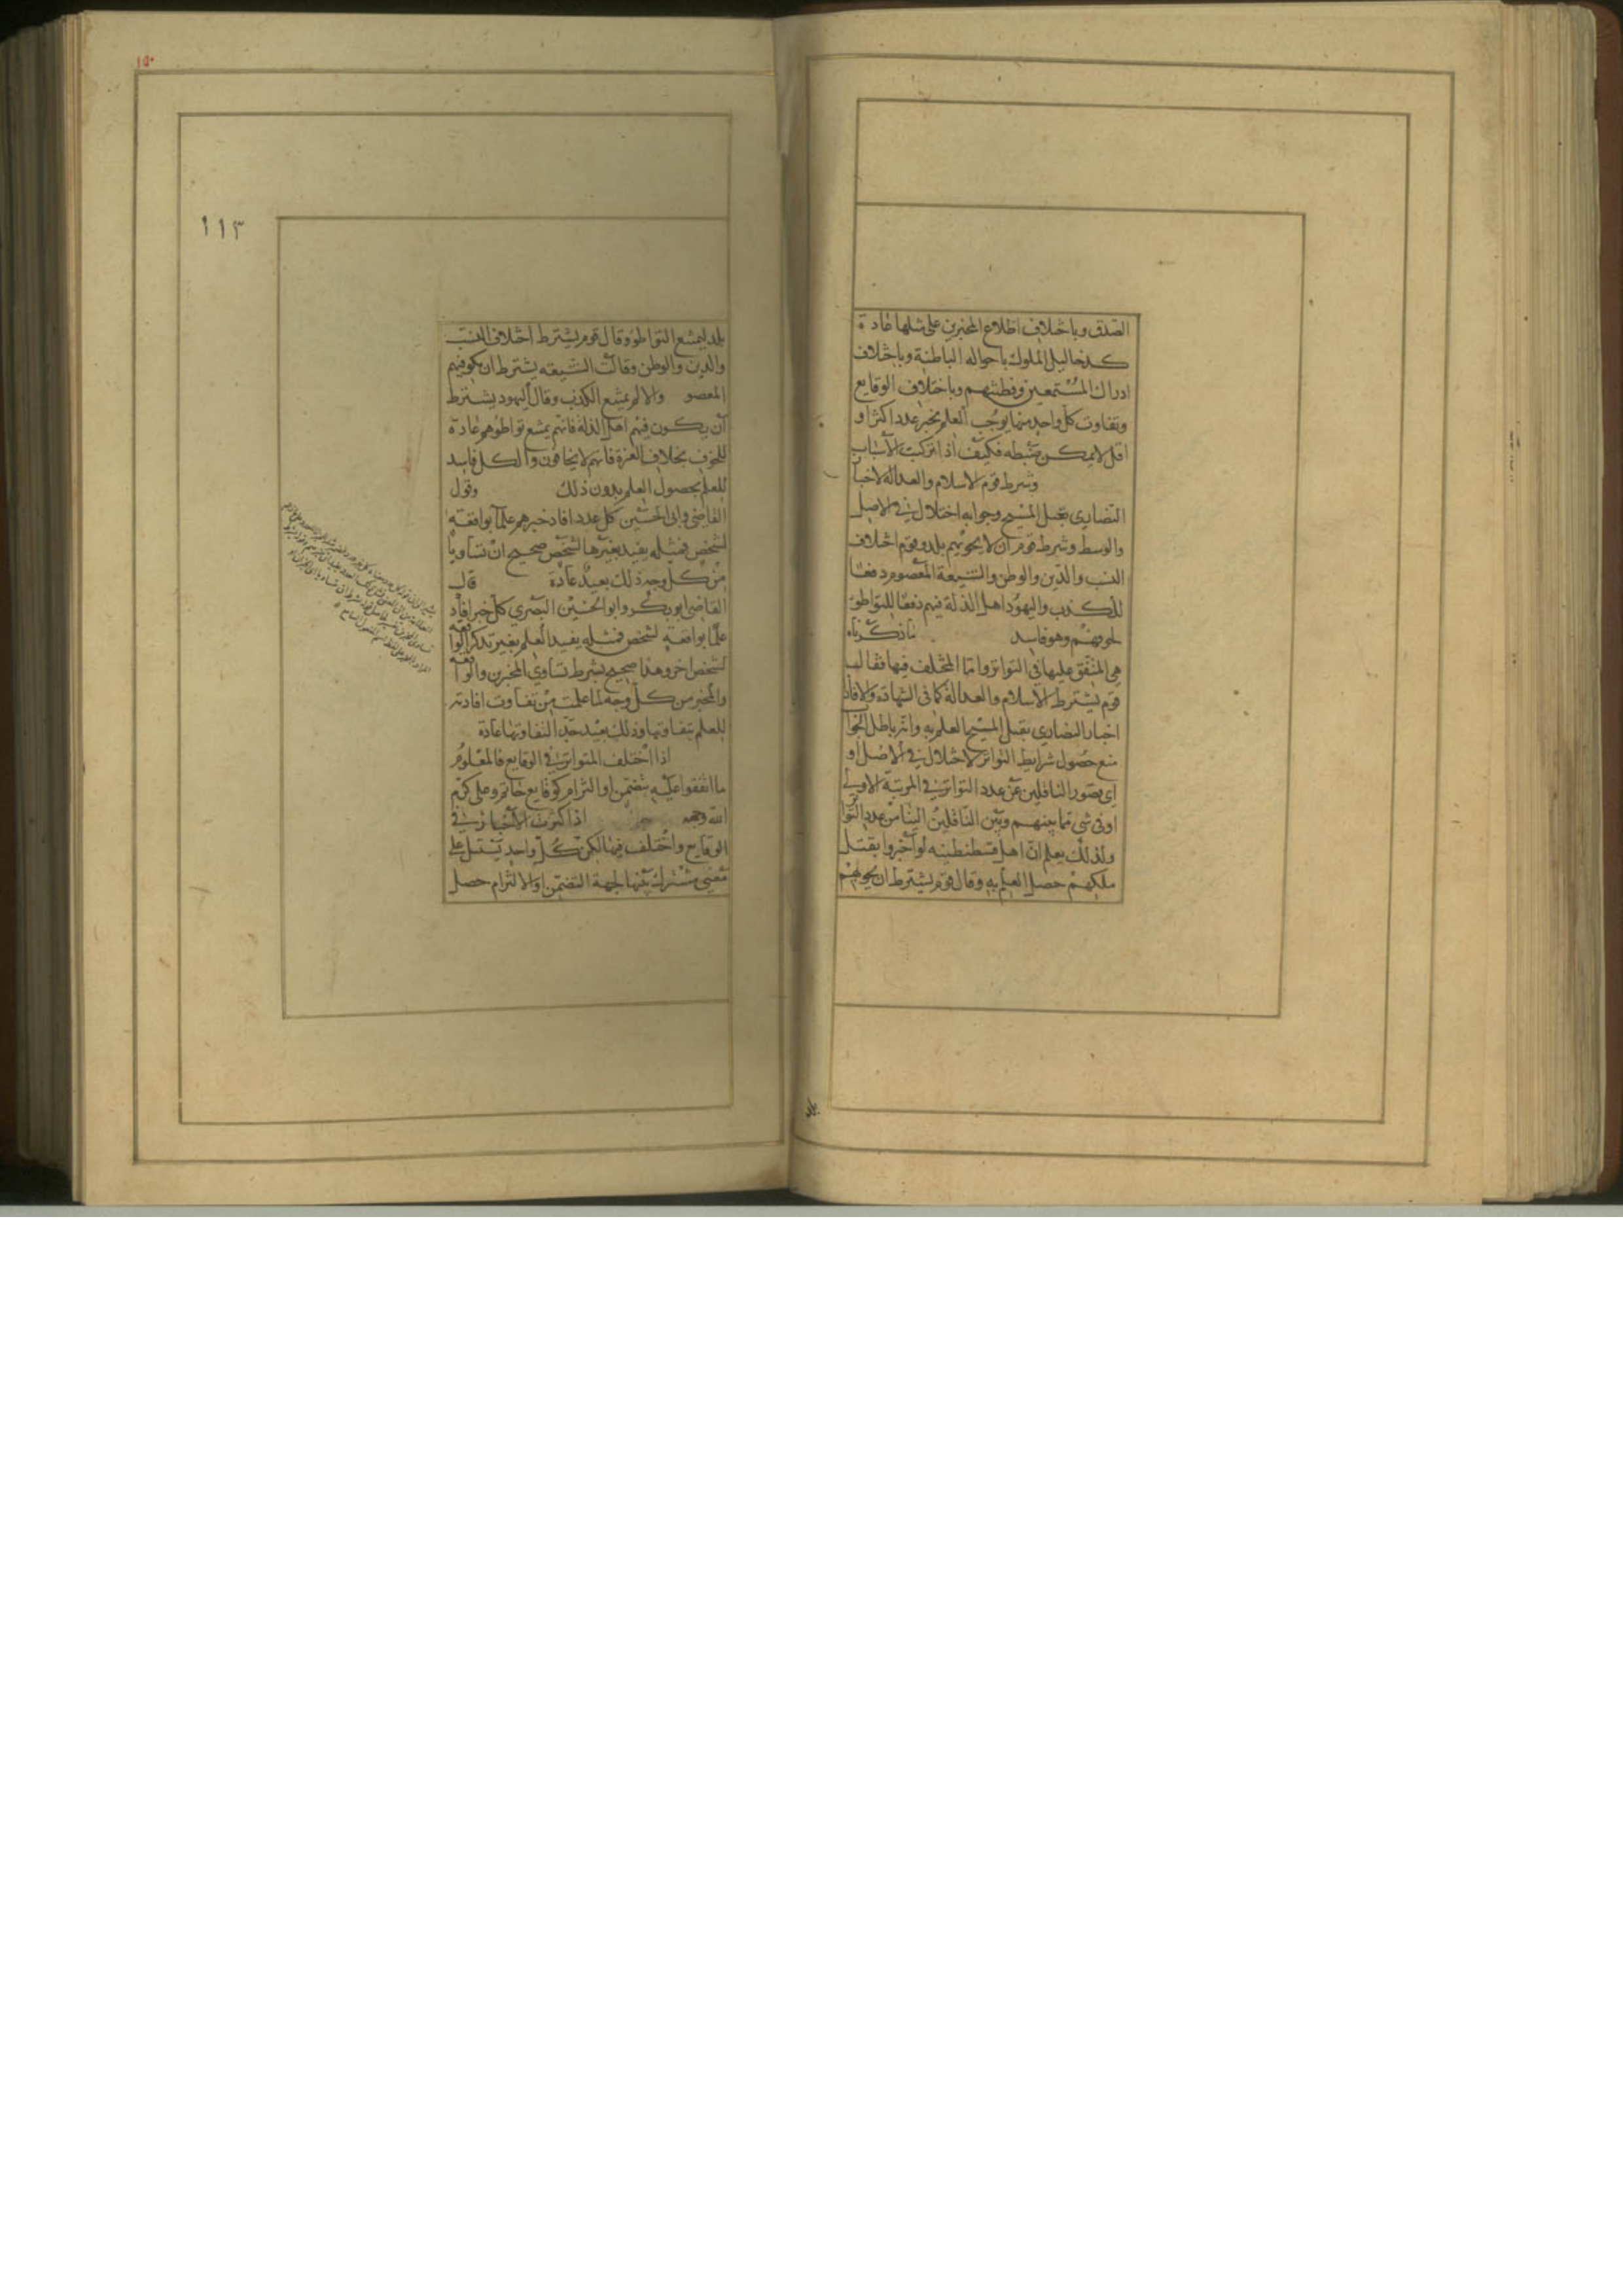 الصدق وباختلاف اطلاع المخبرين على مثلها عادة
كدخاليل الملوك باحواله الباطنة وباختلاف
ادراك المستمعين وفطنتهم وباختلاف الوقايع
وتفاوت كل واحد منها يوجب العلم بخبر عدد اكثر او
اقل لا يمكن ضبطه فكيف اذا تركبت الاسباب
وشرط قوم الاسلام والعدالة لاخبار
النصارى بقتل المسيح وجوابه اختلال في الاصل
والوسط وشرط قوم ان لا يحويهم بلد وقوم اختلاف
النسب والدين والوطن والشيعة المعصوم دفعا
للكذب واليهود اهل الذلة فيهم دفعا للتواطؤ
لخوفهم وهو فاسد ما ذكرناه
هي المتفق عليها في التواتر واما المختلف فيها فقال
قوم يشترط الاسلام والعدالة كما في الشهادة والا فاد
اخبار النصارى بقتل المسيح العلم به وانه باطل الجوا
منع حصول شرايط التواتر لاختلال في الاصل او
اي بصور الناقلين عن عدد التواتر في المرتبة الاولى
او في شي مما بينهم وبين الناقلين الينا من عدد التوا
ولذلك يعلم ان اهل قسطنطينيه لو اخبروا بقتل
ملكهم حصل العلم به وقال قوم يشترط ان لا يحويهم
بلد
١٥٠
١١٣
بلد ليمتنع التواطؤ وقال قوم يشترط اختلاف النسب
والدين والوطن وقالت الشيعه يشترط ان يكون فيهم
المعصو والا لم يمتنع الكذب وقال اليهود يشترط
ان يكون فيهم اهل الذلة فانهم يمتنع تواطؤهم عادة
للخوف بخلاف العزة فانهم لا يخافون والكل فاسد
للعلم بحصول العلم بدون ذلك وقول
القاضي وابي الحسين كل عدد افاد خبرهم علما بواقعة
لشخص فمثله يفيد بغيرها لشخص صحيح ان تساويا
من كل وجه وذلك بعيد عادة قال
القاضي ابو بكر وابو الحسين البصري كل خبر افاد
علما بواقعة لشخص فمثله يفيد العلم بغير تلك الواقعة
لشخص اخر وهذا صحيح بشرط تساوي المخبرين والواقعة
والمخبر من كل وجه لما علمت من تفاوت افادته
للعلم بتفاوتها وذلك بعيد جدا لتفاوتها عادة
اذا اختلف المتواتر في الوقايع فالمعلوم
ما اتفقوا عليه بتضمن او التزام كوقايع حاتم وعلي كرم
الله وجهه اذا كثرت الاخبار في
الوقايع واختلف فيها لكن كل واحد يشتمل على
معنى مشترك بينها بجهة التضمن او الالتزام حصل